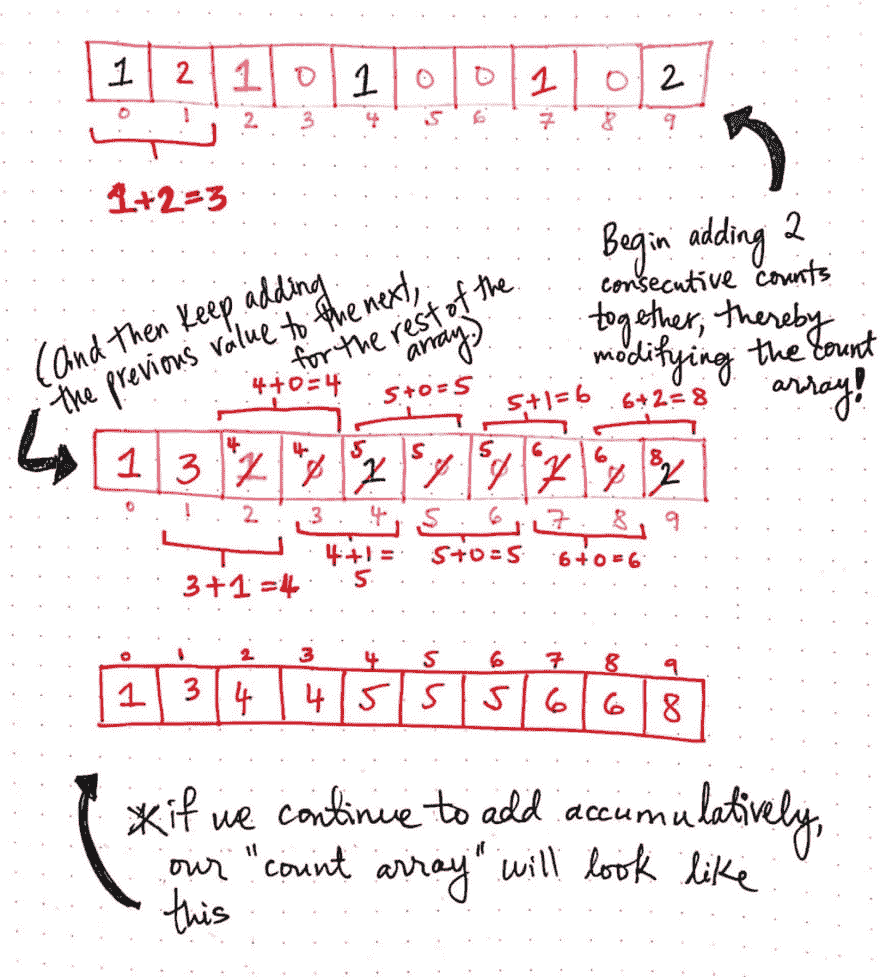 1 2 1 0 1 0 0 1 0 2
0 1 2 3 4 5 6 7 8 9
1+2=3
Begin adding 2
consecutive counts
together, thereby
modifying the count
array!
(And then keep adding
the previous value to the next,
for the rest of the
array.)
4+0=4 5+0=5 5+1=6 6+2=8
4 4 5 5 5 6 6 8
1 3 2 0 2 0 0 2 0 2
0 1 2 3 4 5 6 7 8 9
3+1=4
4+1=
5
5+0=5
6+0=6
0 1 2 3 4 5 6 7 8 9
1 3 4 4 5 5 5 6 6 8
*if we continue to add accumulatively,
our "count array" will look like
this